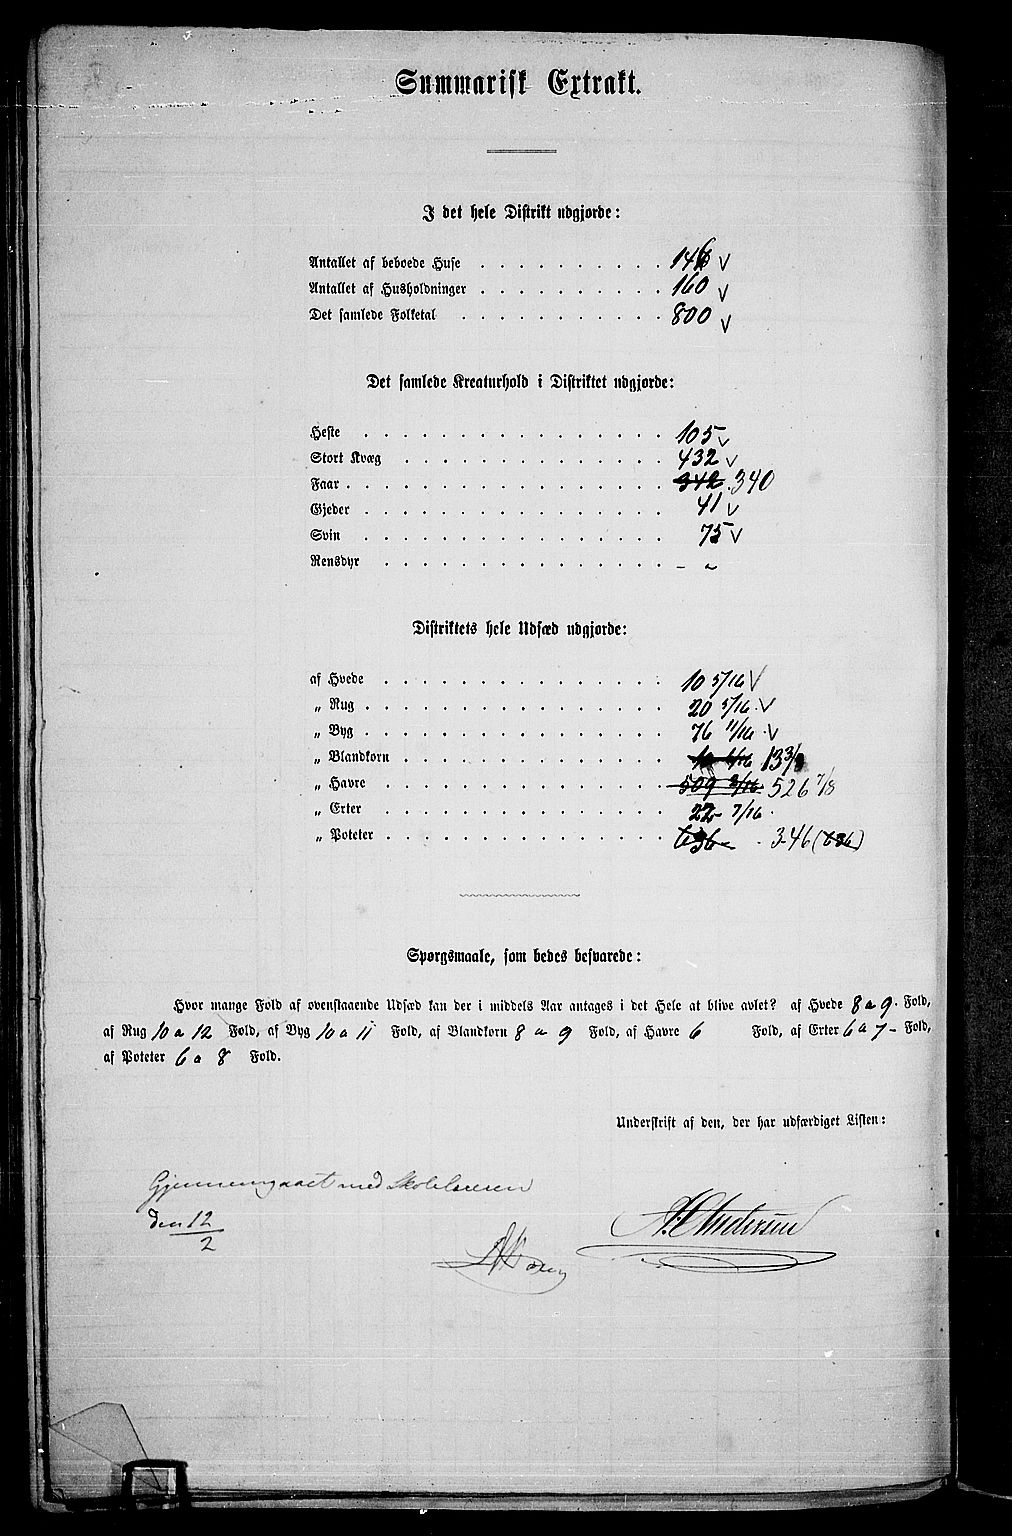 Summarisk Extrakt.
I det hele Distrikt udgjorde:
Antallet af beboede Huse . . . . . . . . . . 146 v
Antallet af Husholdninger . . . . . . . . . . 160 v
Det samlede Folketal . . . . . . . . . . . 800 v
Det samlede Kreaturhold i Distriktet udgjorde:
Heste . . . . . . . . . . . . . . . . 105 v
Stort Kvæg . . . . . . . . . . . . . . 432 v
Faar . . . . . . . . . . . . . . . . . 342 340
Gjeder . . . . . . . . . . . . . . . . 41 v
Svin . . . . . . . . . . . . . . . . 75 v
Rensdyr . . . . . . . . . . . . . . . - "
Distriktets hele Udsæd udgjorde:
af Hvede . . . . . . . . . . . . . . . 10 5/16 v
„ Rug . . . . . . . . . . . . . . . . 20 5/16 v
„ Byg . . . . . . . . . . . . . . . . 76 11/16 v
„ Blandkorn . . . . . . . . . . . . . . 13 3/8
„ Havre . . . . . . . . . . . . . . . . 509 3/16 526 7/8
„ Erter . . . . . . . . . . . . . . . 22 7/16
„ Poteter . . . . . . . . . . . . . . . 636 346 (636)
Spørgsmaale, som bedes besvarede:
Hvor mange Fold af ovenstaaende Udsæd kan der i middels Aar antages i det Hele at blive avlet? af Hvede 8 a 9 Fold,
af Rug 10 a 12 Fold, af Byg 10 a 11 Fold, af Blandkorn 8 a 9 Fold, af Havre 6 Fold, af Erter 6 a 7 Fold,
af Poteter 6 a 8 Fold.
Underskrift af den, der har udfærdiget Listen:
Gjennemgaaet med
den 12/2
Andersen